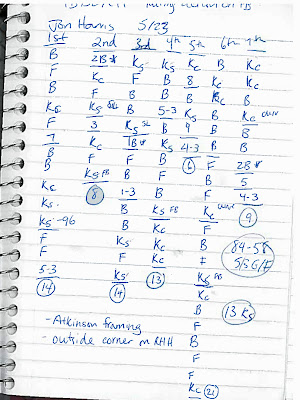 Jon Harris 5/23
1st 2nd 3rd 4th 5th 6th 7th
B 2B Ks Ks Kc B Kc
F Kc F B 8 Kc Kc
B F B B B Kc B
Ks Ks B 5-3 Ks B Kc
F 3 Ks B 9 B 8
7 Kc 1B Ks 4-3 B B
B F F B 6 F 2B
B Ks FB B F B 5
Kc 8 1-3 B Kc F 4-3
Ks B Ks FB Kc 9
Ks -96 Ks Kc B 84-58
F F Kc F S/S G/F
F Ks FB
5-3 Ks 13 Kc
14 14 B 13 Ks
- Atkinson framing F
- outside corner on RHH B
F
F
Kc 21